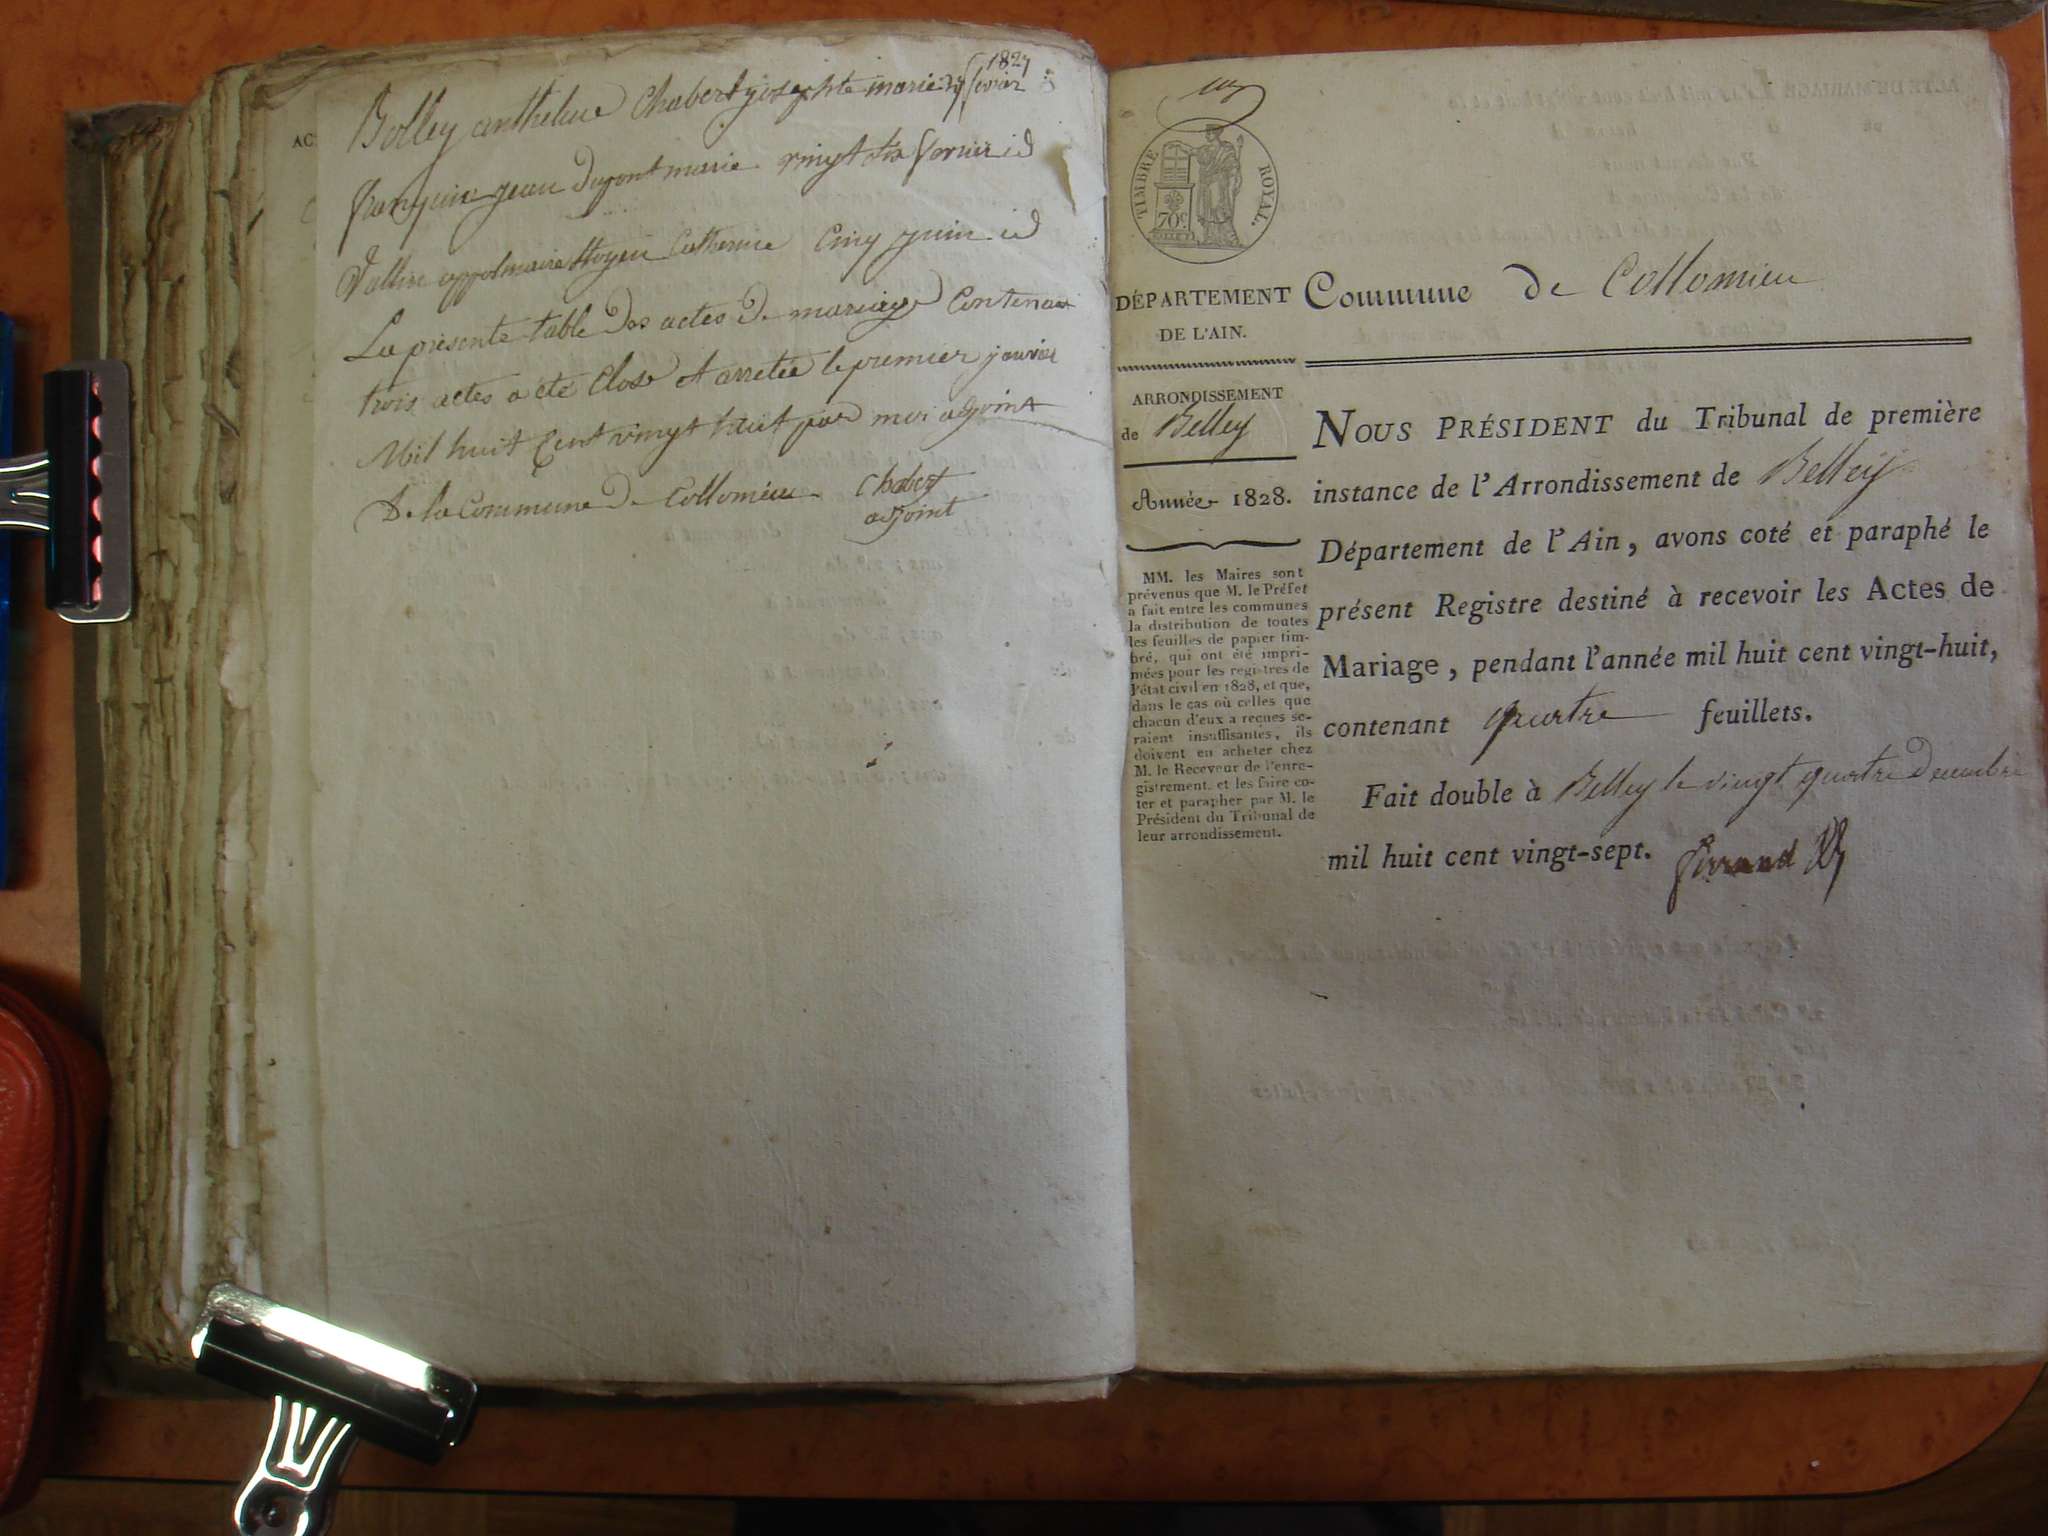 1827
Bolley anthelme Chabert josephte marie 27 fevrier
françois jean Dupont marie vingt six fevrier id
Vallin appolinaire Moyen Catherine Cinq juin id
La présente table Des actes De mariage Contenant
trois actes a été Close et arretée le premier janvier
Mil huit Cent vingt huit par moi adjoint
De la Commune De Collomieu Chabert
adjoint
AC
TIMBRE ROYAL.
70c
DÉPARTEMENT
DE L'AIN.
Commune de Collomieu
ARRONDISSEMENT
de Belley
Année 1828.
MM. les Maires sont
prévenus que M. le Préfet
a fait entre les communes
la distribution de toutes
les feuilles de papier tim-
bré, qui ont été impri-
mées pour les registres de
l'état civil en 1828, et que,
dans le cas où celles que
chacun d'eux a reçues se-
raient insuffisantes, ils
doivent en acheter chez
M. le Receveur de l'enre-
gistrement, et les faire co-
ter et parapher par M. le
Président du Tribunal de
leur arrondissement.
NOUS PRÉSIDENT du Tribunal de première
instance de l'Arrondissement de Belley
Département de l'Ain, avons coté et paraphé le
présent Registre destiné à recevoir les Actes de
Mariage, pendant l'année mil huit cent vingt-huit,
contenant quatre feuillets.
Fait double à Belley le vingt quatre Decembre
mil huit cent vingt-sept.